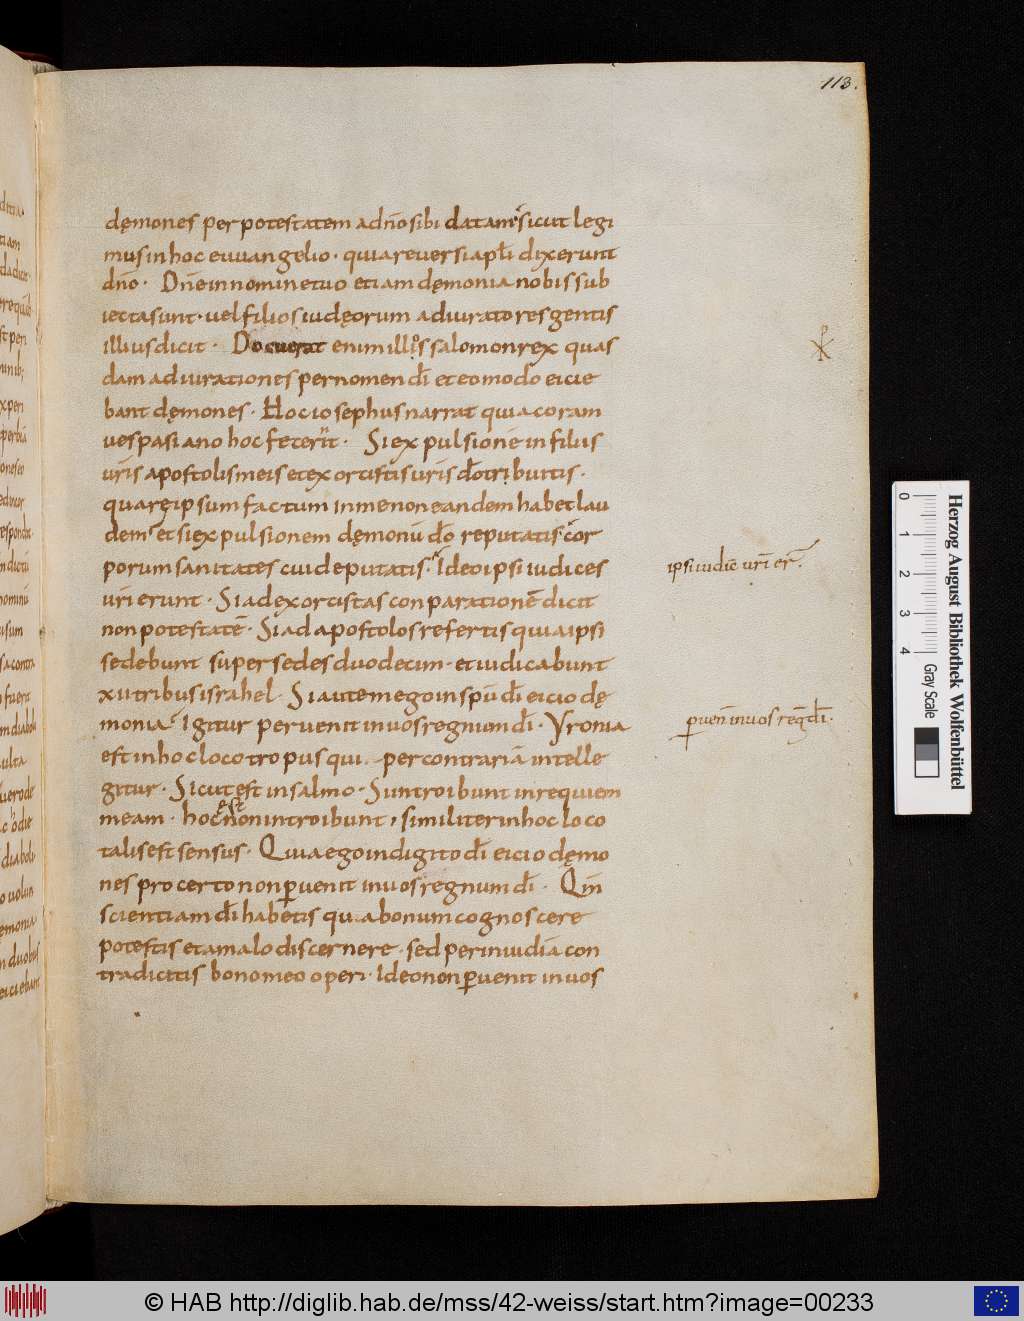 113.
dęmones per potestatem a dño sibi datam, sicut legi
mus in hoc euuangelio · quia reuersi apłi dixerunt
dño · Dñe in nomine tuo etiam dęmonia nobis sub
iecta sunt · uel filios iudęorum adiuratores gentis
illius dicit · Docuerat enim illos salomon rex quas
dam adiurationes per nomen di et eo modo eicie
bant dęmones · Hoc iosephus narrat quia coram
uespasiano hoc fecerint · Si expulsione in filiis
uris apostolis meis et exorcistis uris do tribuitis ·
quare ipsum factum in me non eandem habet lau
dem · et si expulsionem dęmonū do reputatis cor
porum sanitates cui deputatis · Ideo ipsi iudices
uri erunt · Si ad exorcistas conparationē dicit
non potestatē · Si ad apostolos refertis quia ipsi
sedebunt super sedes duodecim · et iudicabunt
xii tribus israhel · Si autem ego in spū di eicio dę
monia · Igitur peruenit in uos regnum di · Yronia
est in hoc loco tropus qui per contrariā intelle
gitur · Sicut est in salmo · Si introibunt in requiem
meam · hoc est non introibunt, similiter in hoc loco
talis est sensus · Quia ego in digito di eicio dęmo
nes pro certo non puenit in uos regnum di · Qm
scientiam di habetis qua bonum cognoscere
potestis et a malo discernere · sed per inuidiā con
tradicitis bono meo operi · Ideo non puenit in uos
ipsi iudic uri er
puen in uos reg di ·
0 1 2 3 4
Gray Scale
Herzog August Bibliothek Wolfenbüttel
© HAB http://diglib.hab.de/mss/42-weiss/start.htm?image=00233